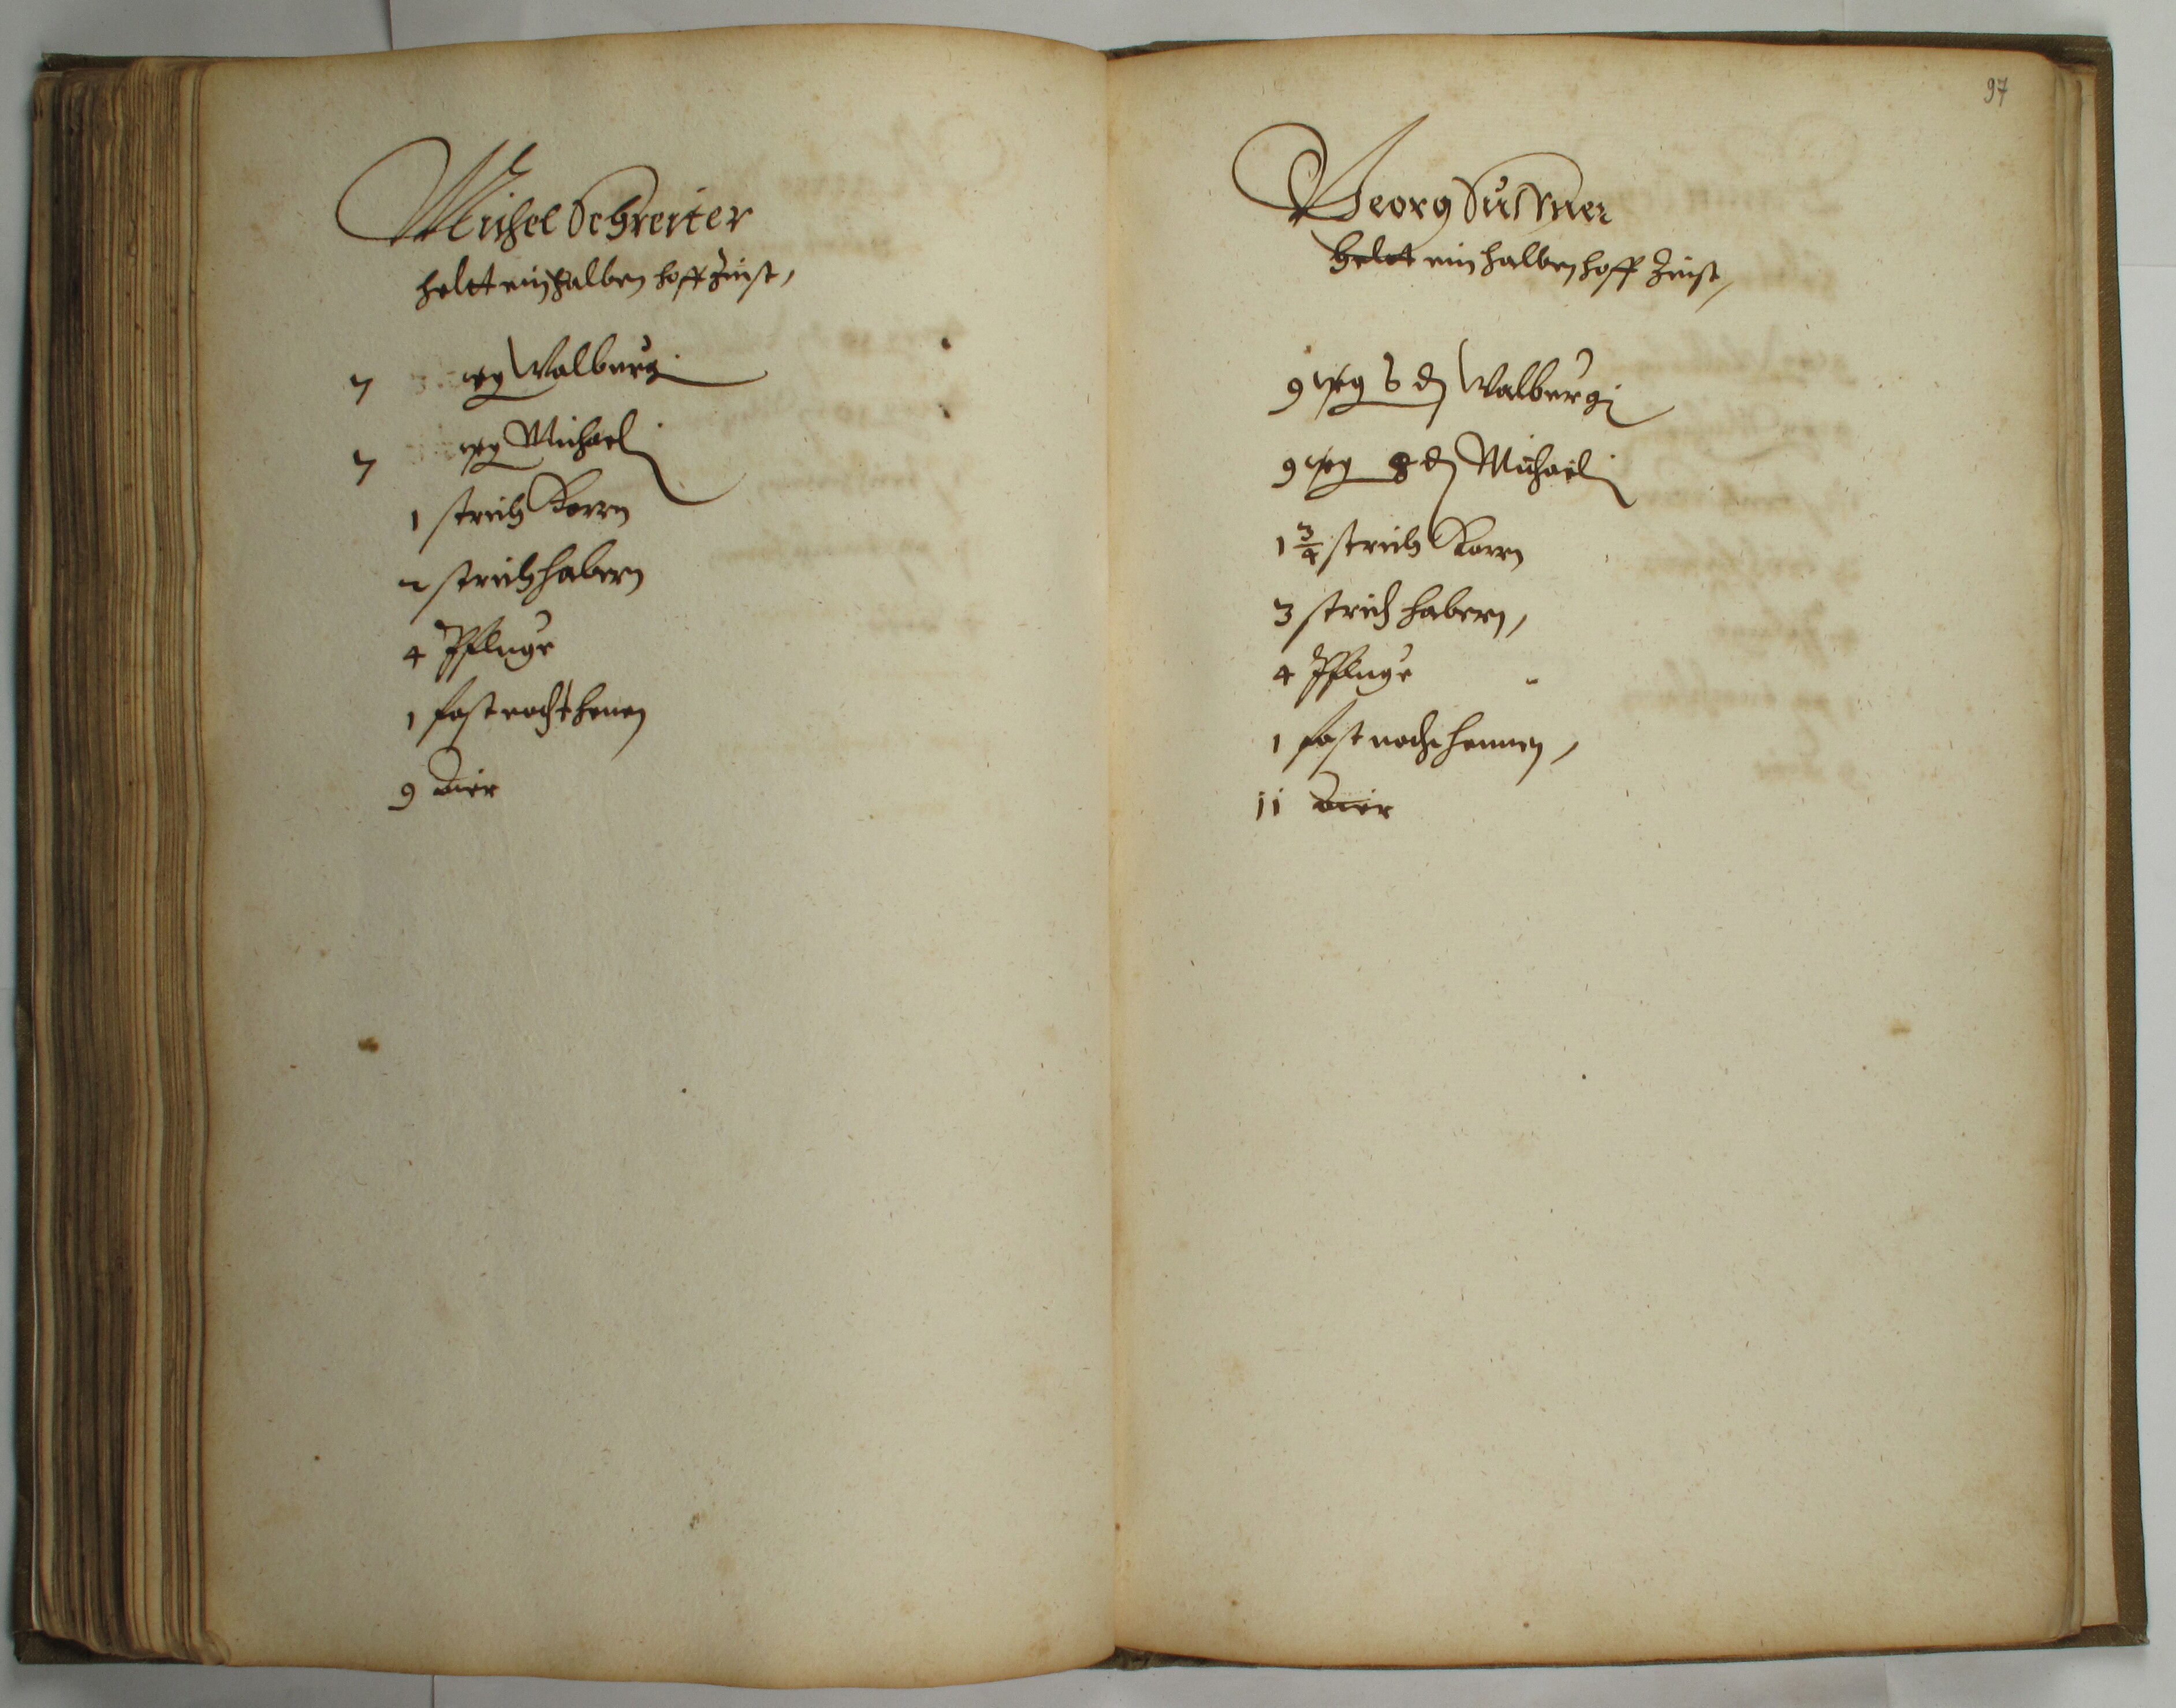 Michel Schreiter
heltt ein halben hoff Zinst,
7 wg Walburgi
7 wg Michaeli
1 strich Korrn
2 strich habern
4 Pfluge
1 fastnacht henen
9 Aier
97
Georg Sussner
heltt ein halben hoff Zinst,
9 wg 8 d Walburgi
9 wg 8 d Michaeli
1 3/4 strich Korrn
3 strich habern,
4 Pfluge
1 fastnacht hennen,
11 Aier